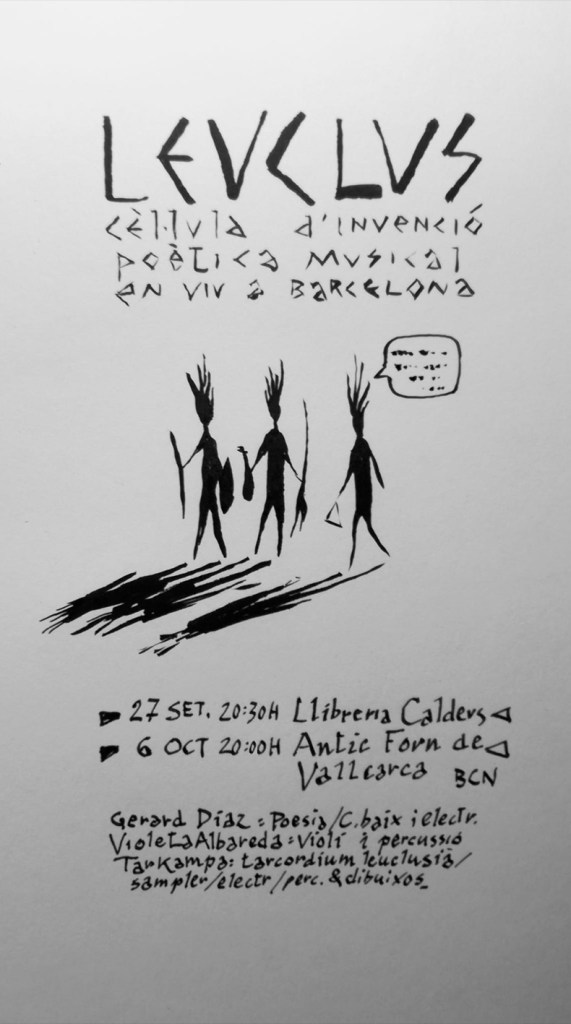 LEUCLUS
cèl·lula d'invenció
poètica musical
en viu a Barcelona
27 SET. 20:30H Llibreria Calders
6 OCT 20:00H Antic Forn de
Vallcarca BCN
Gerard Díaz: Poesia/C.baix i electr.
Violeta Albareda: Violí i percussió
Tarkampa: tarcordium leuclusià/
sampler/electr/perc. & dibuixos_